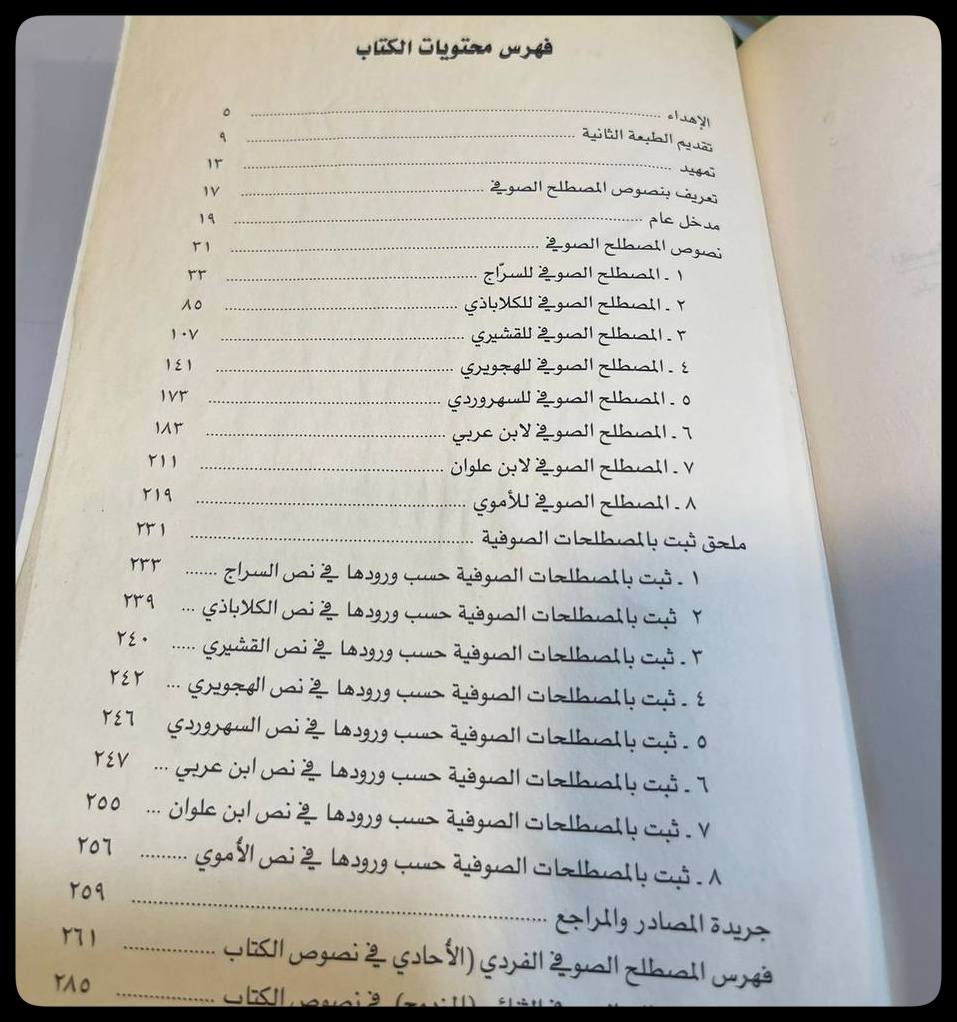 فهرس محتويات الكتاب
الإهداء ........ ٥
تقديم الطبعة الثانية ........ ٩
تمهيد ........ ١٣
تعريف بنصوص المصطلح الصوفي ........ ١٧
مدخل عام ........ ١٩
نصوص المصطلح الصوفي ........ ٣١
١ ـ المصطلح الصوفي للسرّاج ........ ٣٣
٢ ـ المصطلح الصوفي للكلاباذي ........ ٨٥
٣ ـ المصطلح الصوفي للقشيري ........ ١٠٧
٤ ـ المصطلح الصوفي للهجويري ........ ١٤١
٥ ـ المصطلح الصوفي للسهروردي ........ ١٧٣
٦ ـ المصطلح الصوفي لابن عربي ........ ١٨٣
٧ ـ المصطلح الصوفي لابن علوان ........ ٢١١
٨ ـ المصطلح الصوفي للأموي ........ ٢١٩
ملحق ثبت بالمصطلحات الصوفية ........ ٢٣١
١ ـ ثبت بالمصطلحات الصوفية حسب ورودها في نص السراج ....... ٢٣٣
٢ ثبت بالمصطلحات الصوفية حسب ورودها في نص الكلاباذي ... ٢٣٩
٣ ـ ثبت بالمصطلحات الصوفية حسب ورودها في نص القشيري ..... ٢٤٠
٤ ـ ثبت بالمصطلحات الصوفية حسب ورودها في نص الهجويري ... ٢٤٢
٥ ـ ثبت بالمصطلحات الصوفية حسب ورودها في نص السهروردي ٢٤٦
٦ ـ ثبت بالمصطلحات الصوفية حسب ورودها في نص ابن عربي ... ٢٤٧
٧ ـ ثبت بالمصطلحات الصوفية حسب ورودها في نص ابن علوان ... ٢٥٥
٨ ـ ثبت بالمصطلحات الصوفية حسب ورودها في نص الأموي ......... ٢٥٦
جريدة المصادر والمراجع ........ ٢٥٩
فهرس المصطلح الصوفي الفردي (الأحادي في نصوص الكتاب ........ ٢٦١
في نصوص الكتاب ........ ٢٨٥